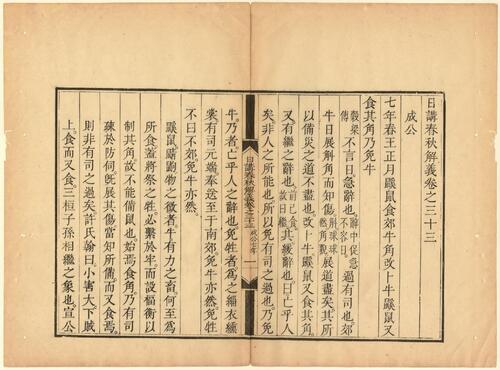 日講春秋解義卷之三十三
成公
七年春王正月鼷鼠食郊牛角改卜牛鼷鼠又
食其角乃免牛
穀梁傳不言日急辭也辭中促急不容日過有司也郊
牛日展斛角而知傷斛球球然角貌展道盡矣其所
以備災之道不盡也改卜牛鼷鼠又食其角
又有繼之辭也前已食故曰繼其緩辭也曰亡乎人
矣非人之所能也所以免有司之過也乃免
日講春秋解義卷之三十三 成公七年 一
牛乃者亡乎人之辭也免牲者為之緇衣纁
裳有司元端奉送至于南郊免牛亦然免牲
不曰郊免牛亦然
鼷鼠齧物之微者牛有力之畜何至為
所食蓋將祭之牲必繫於牢而設楅衡以
制其角故不能備鼠也始焉食角乃有司
疎於防伺既展其傷當知所備而又食焉
則非有司之過矣許氏翰曰小害大下賊
上食而又食三桓子孫相繼之象也宣公